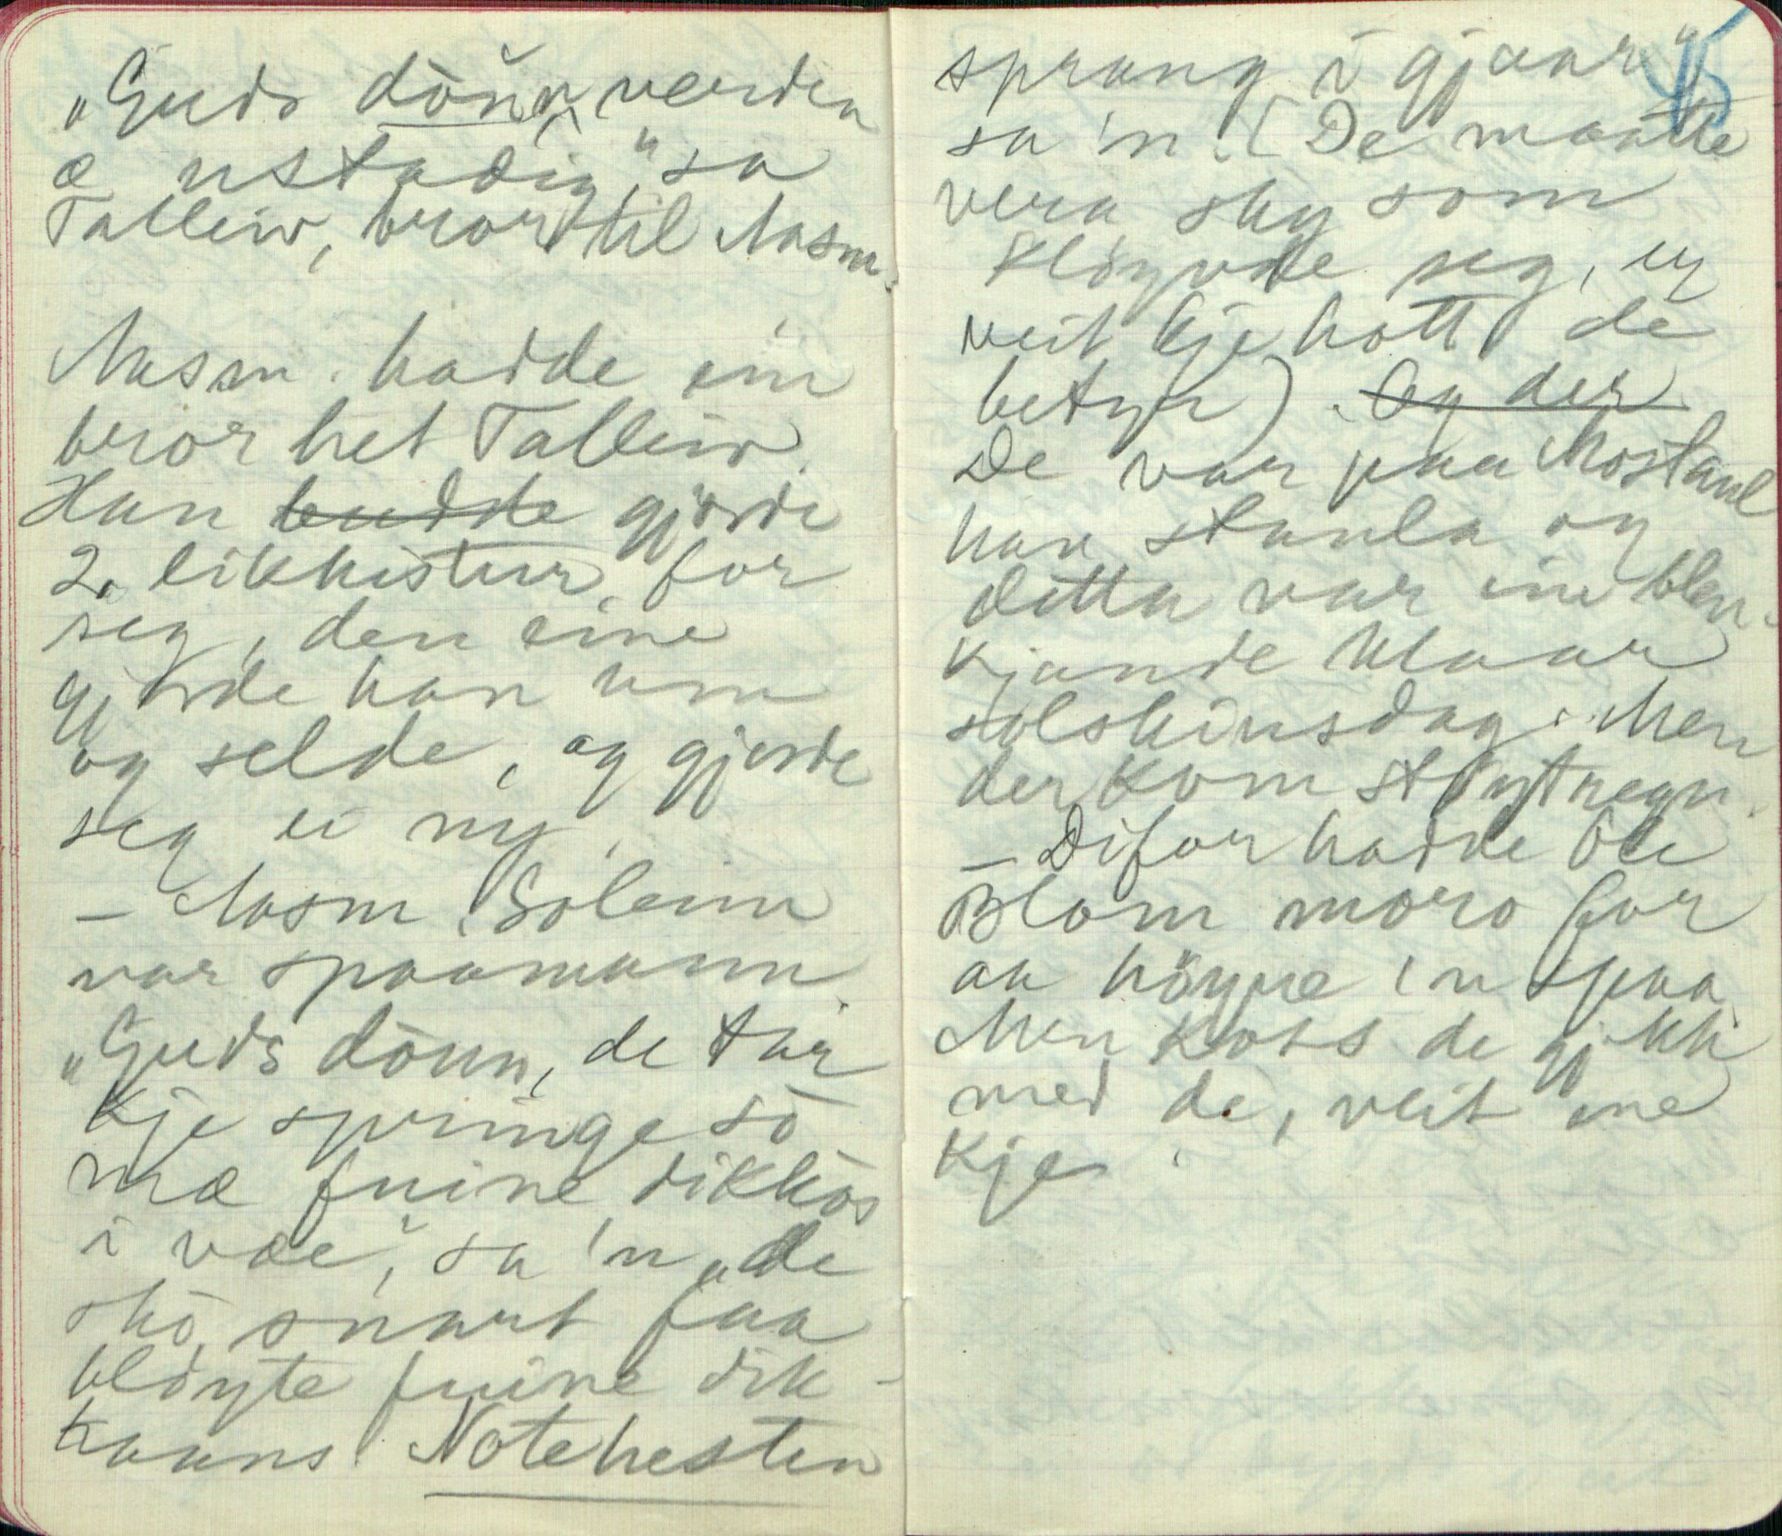 „Guds dönn, verden
æ ustadig," sa
Talleiv, bror til Aasm.
Aasm. hadde ein
bror het Talleiv.
Han budde gjorde
2. likkistur for
seg, den eine
gjorde han um
og selde, og gjorde
seg ei ny.
– Aasm. Soleim
var spaamann.
„Guds dònn, de tar
kje springe sò
mæ fuine dikkòs
i væe", sa 'n „de
skò snart faa
blöyte fuine dik-
kaans! Notehesten
45
sprang i gjaar"
sa 'n. (De maatte
vera sky som
klöyvde seg, eg
veit kje hott de
betyr). Og der
De var paa Mostaul
han staula og
detta var ein blen-
kjande klaar
solskinsdag. Men
der kom stöytregn.
– Difor hadde Ole
Blom moro for
aa höyre 'n spaa
Men koss de gjekk
med de, veit me
kje.